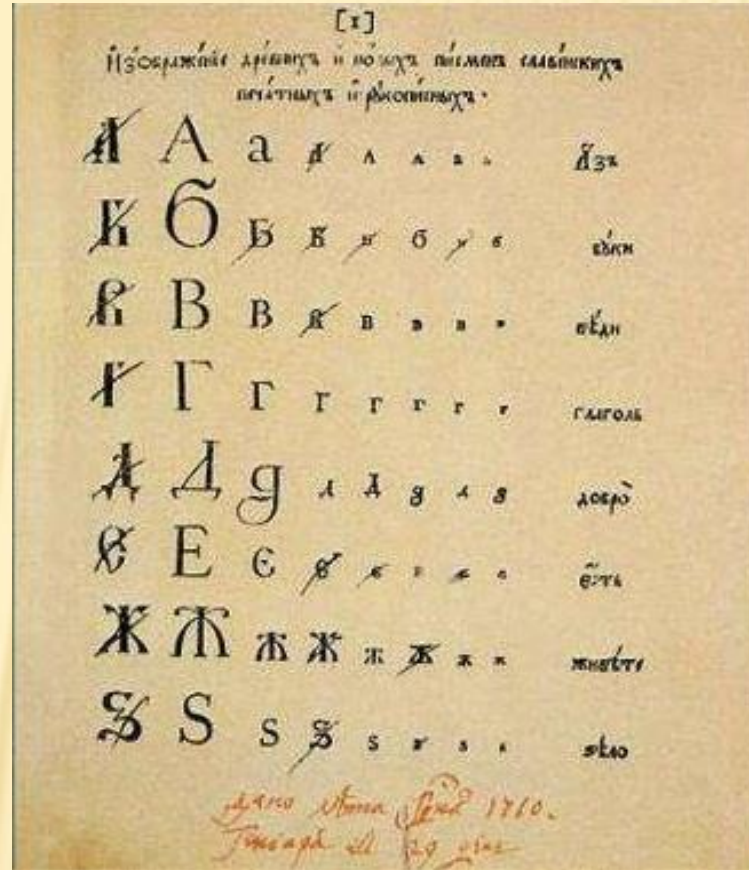 [1]
И҆зображе́нїе дре́внихъ и҆ но́выхъ пи́сменъ славе́нскихъ
печа́тныхъ и҆ рꙋкопи́сныхъ.
А А а А А А а а А҆зъ
Б Б Б Б Б б б б бꙋ́ки
В В В В В в в в вѣ́ди
Г Г Г Г Г г г г глаголь
Д Д д Д Д д д д добро̀
Є Е є є є є є є є҆́сть
Ж Ж Ж Ж ж ж ж ж живѣ́те
Ѕ Ѕ Ѕ Ѕ ѕ ѕ ѕ ѕ ѕѣло̀
дано лѣта 1710.
29